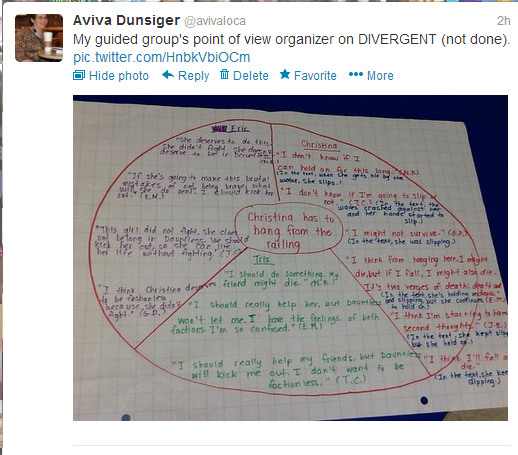 Aviva Dunsiger @avivaloca 2h
My guided group's point of view organizer on DIVERGENT (not done).
pic.twitter.com/HnbkVbiOCm
Hide photo Reply Delete Favorite More
Eric
"She deserves to do this.
She didn't fight. She doesn't
deserve to be in Dauntless."
(N.K.)
"If she's going to make this brutal
mistakes of not being brave, what
will she do next? I should kick her
out." (E.M.)
"This girl did not fight. She does
not belong in Dauntless. We should
kick her out, so she can live
her life without fighting."
"I think Christina deserves
to be factionless
because she didn't
fight." (G.D.)
Christina
"I don't know if I
can hold on for this long." (N.K.)
(In the text, when she gets hit by the
water, she slips.)
"I don't know if I'm going to slip or
not." (T.C.) (In the text, the
waves crashed against her
and her hands started to
slip.)
"I might not survive."
(In the text, she was slipping.)
"I think from hanging here, I might
die, but if I fall, I might also die.
It's two verges of death: death and
(In the text, she's holding
and slipping, but she continues (E.M.)
to hold on.)
"I think I'm starting to have
second thoughts." (J.B.)
(In the text, she kept slipping
but she held on.)
"I think I'll fall and
die."
(In the text, she keeps
slipping.)
Christina has to
hang from the
railing
Tris
"I should do something. My
friend might die." (N.K.)
"I should really help her, but Dauntless
won't let me. I have the feelings of both
factions. I'm so confused." (E.M.)
"I should really help my friends, but Dauntless
will kick me out. I don't want to be
factionless." (T.C.)